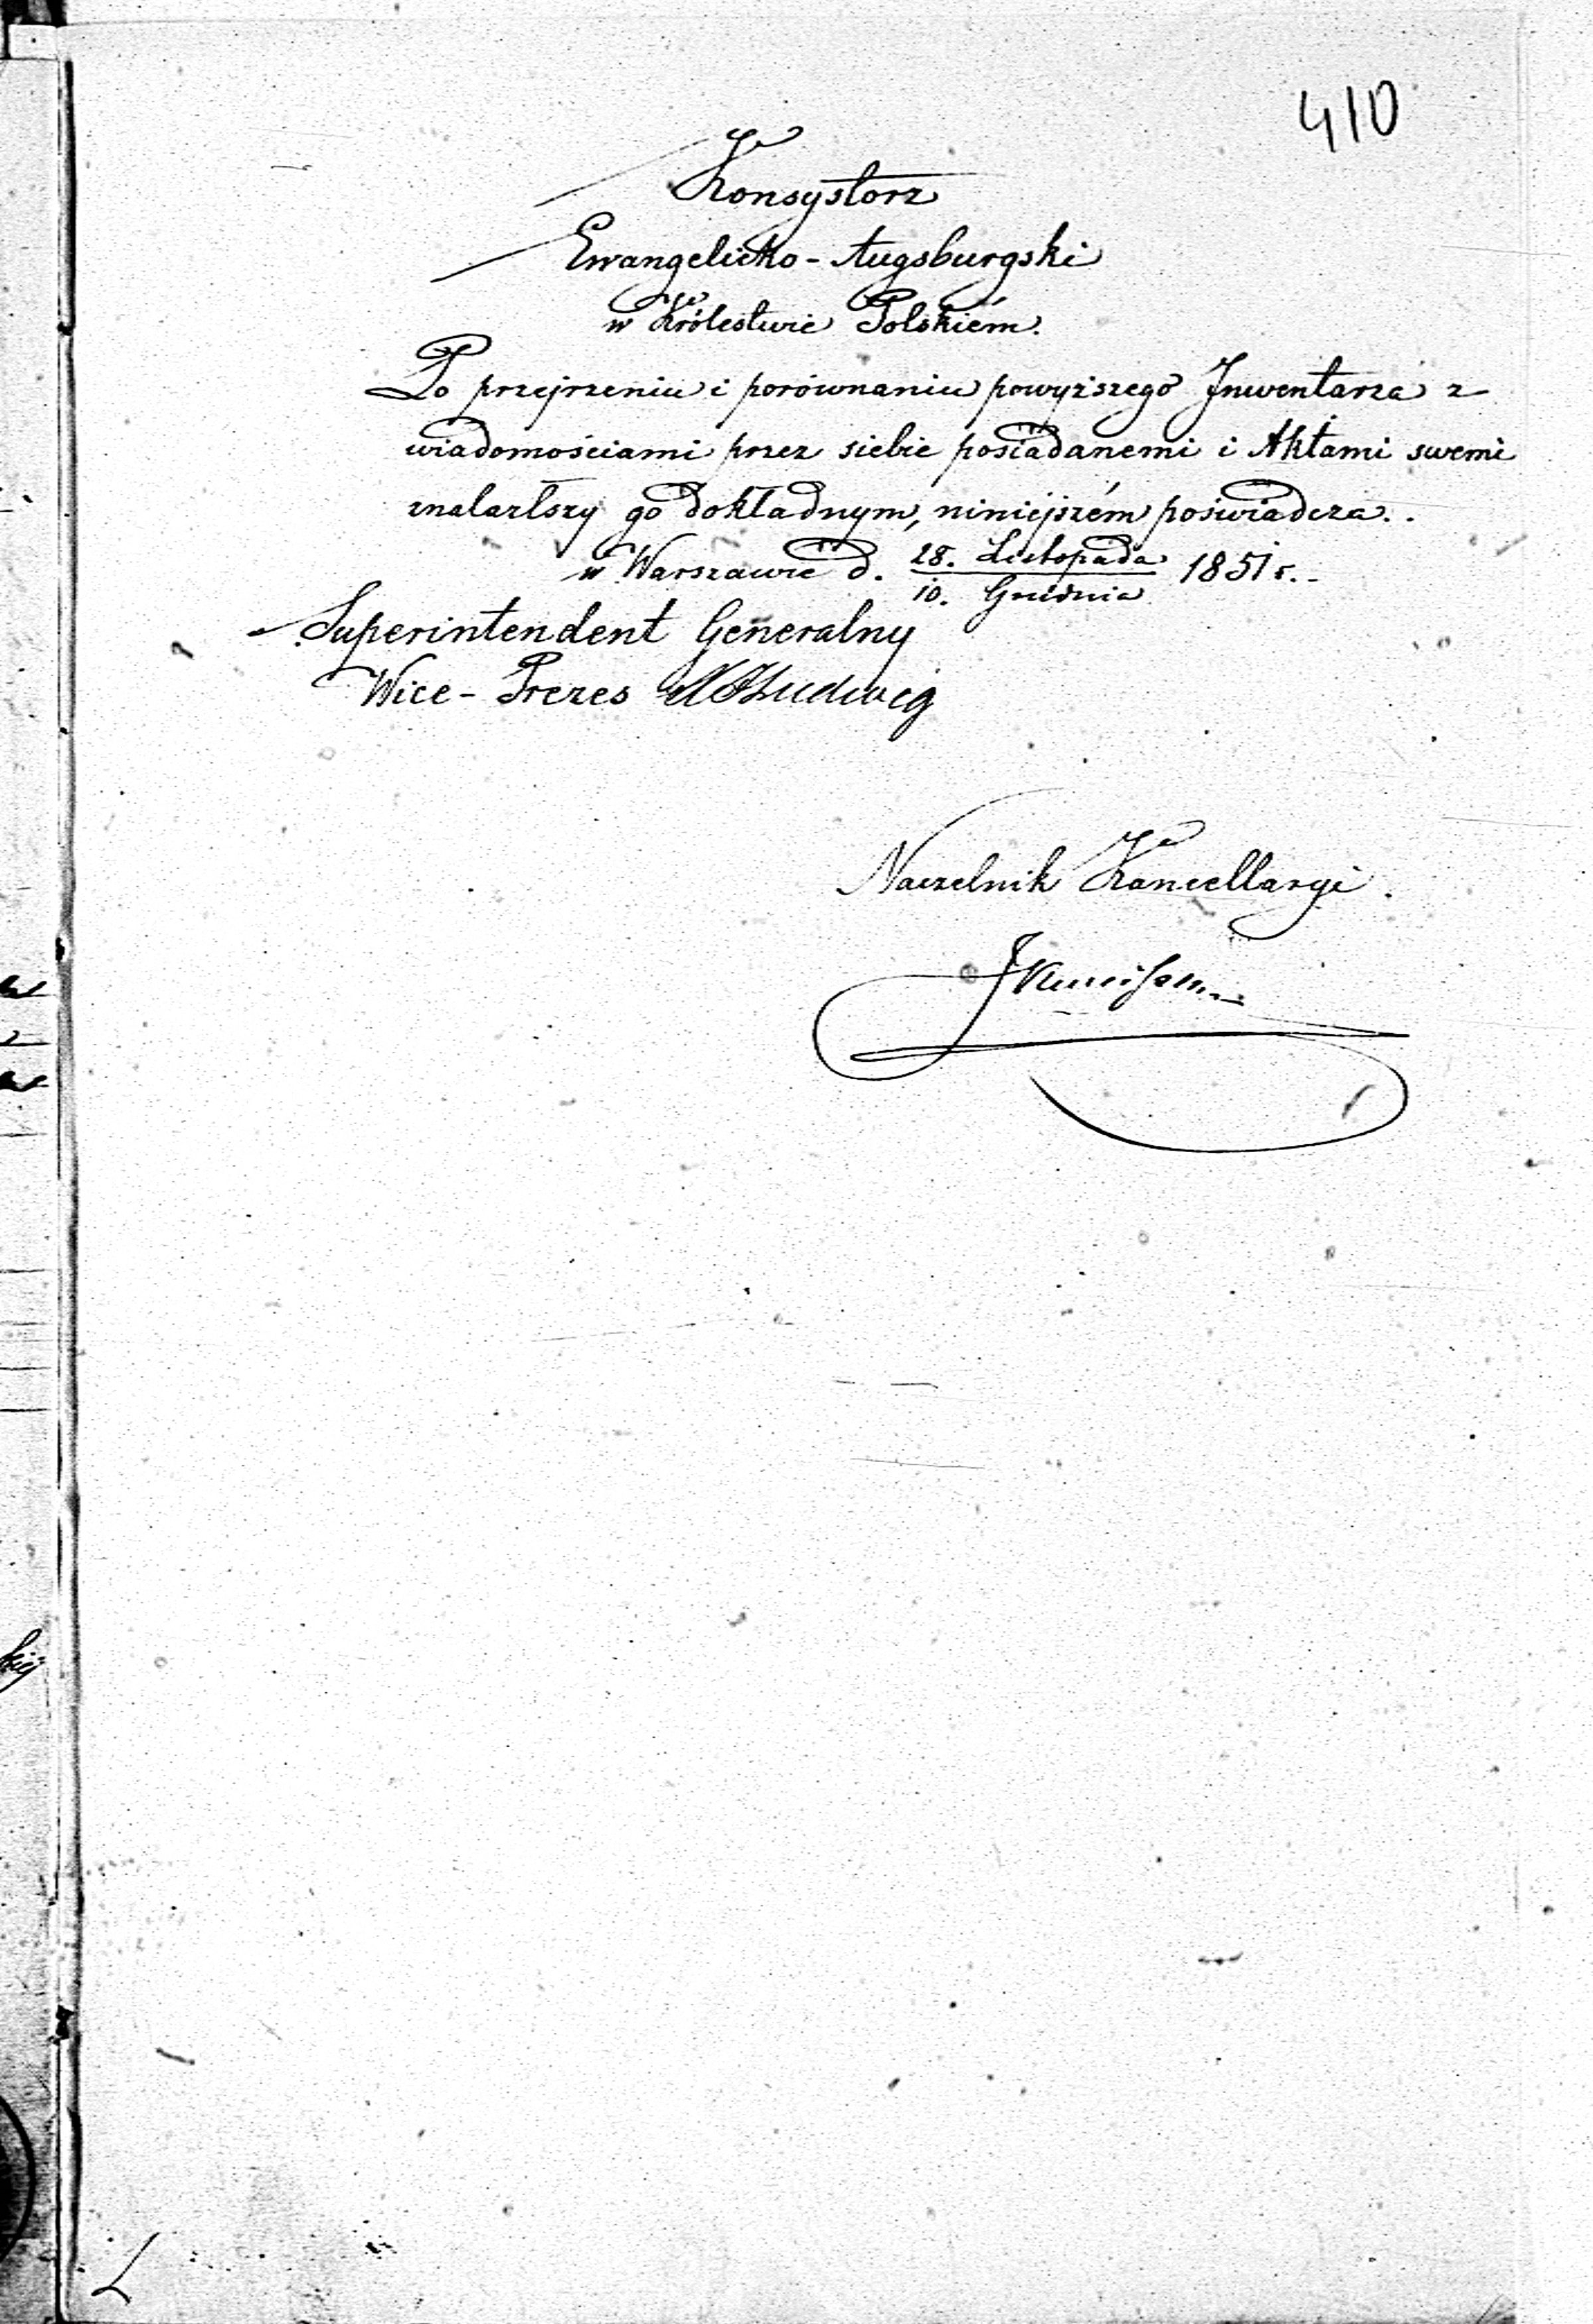 410
Konsystorz
Ewangelicko-Augsburgski
w Królestwie Polskiém.
Po przejrzeniu i porównaniu powyższego Inwentarza z
wiadomościami przez siebie posiadanemi i Aktami swemi
znalazłszy go dokładnym, niniejszém poświadcza.
w Warszawie d. 28. Listopada 1851 r.
10. Grudnia
Superintendent Generalny
Wice-Prezes Ludwig
Naczelnik Kancellaryi.